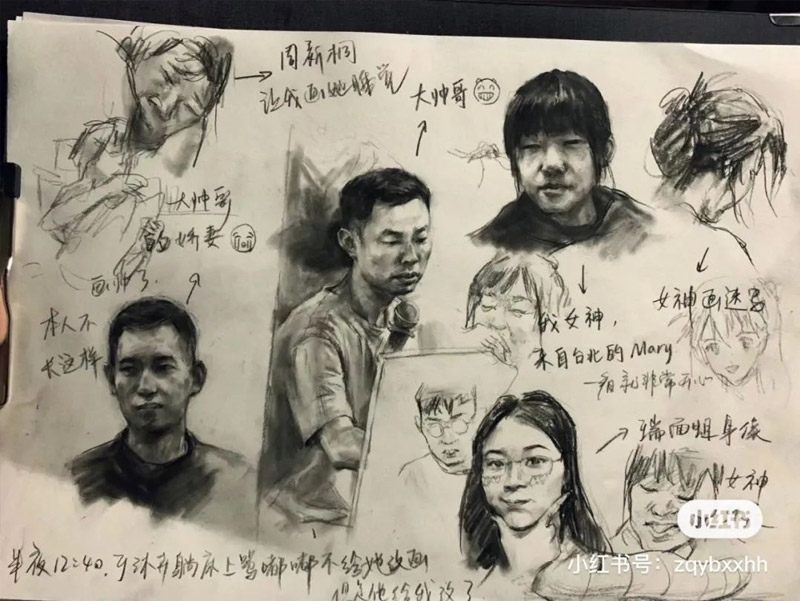 周新桐
让我画她睡觉
大帅哥
大帅哥
的娇妻
画帅了.
本人不
长这样
我女神,
来自台北的Mary
一看就非常开心
女神画速写
瑞西姐单侠
女神
半夜12:40,
躺床上骂嘟嘟不给她改画
但是他给我改了
小红书
小红书号: zqybxxhh